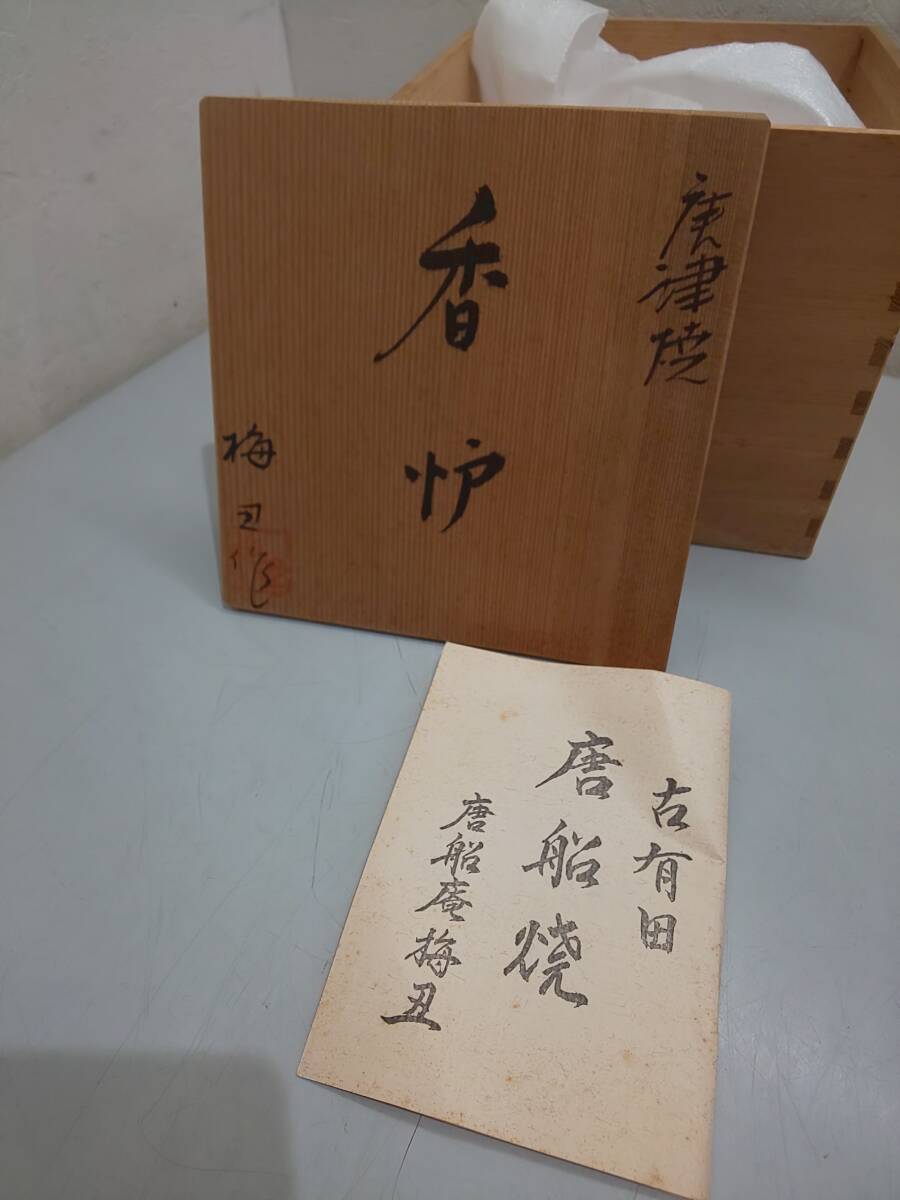 唐津焼
香炉
梅丑作
古有田
唐船焼
唐船庵梅丑